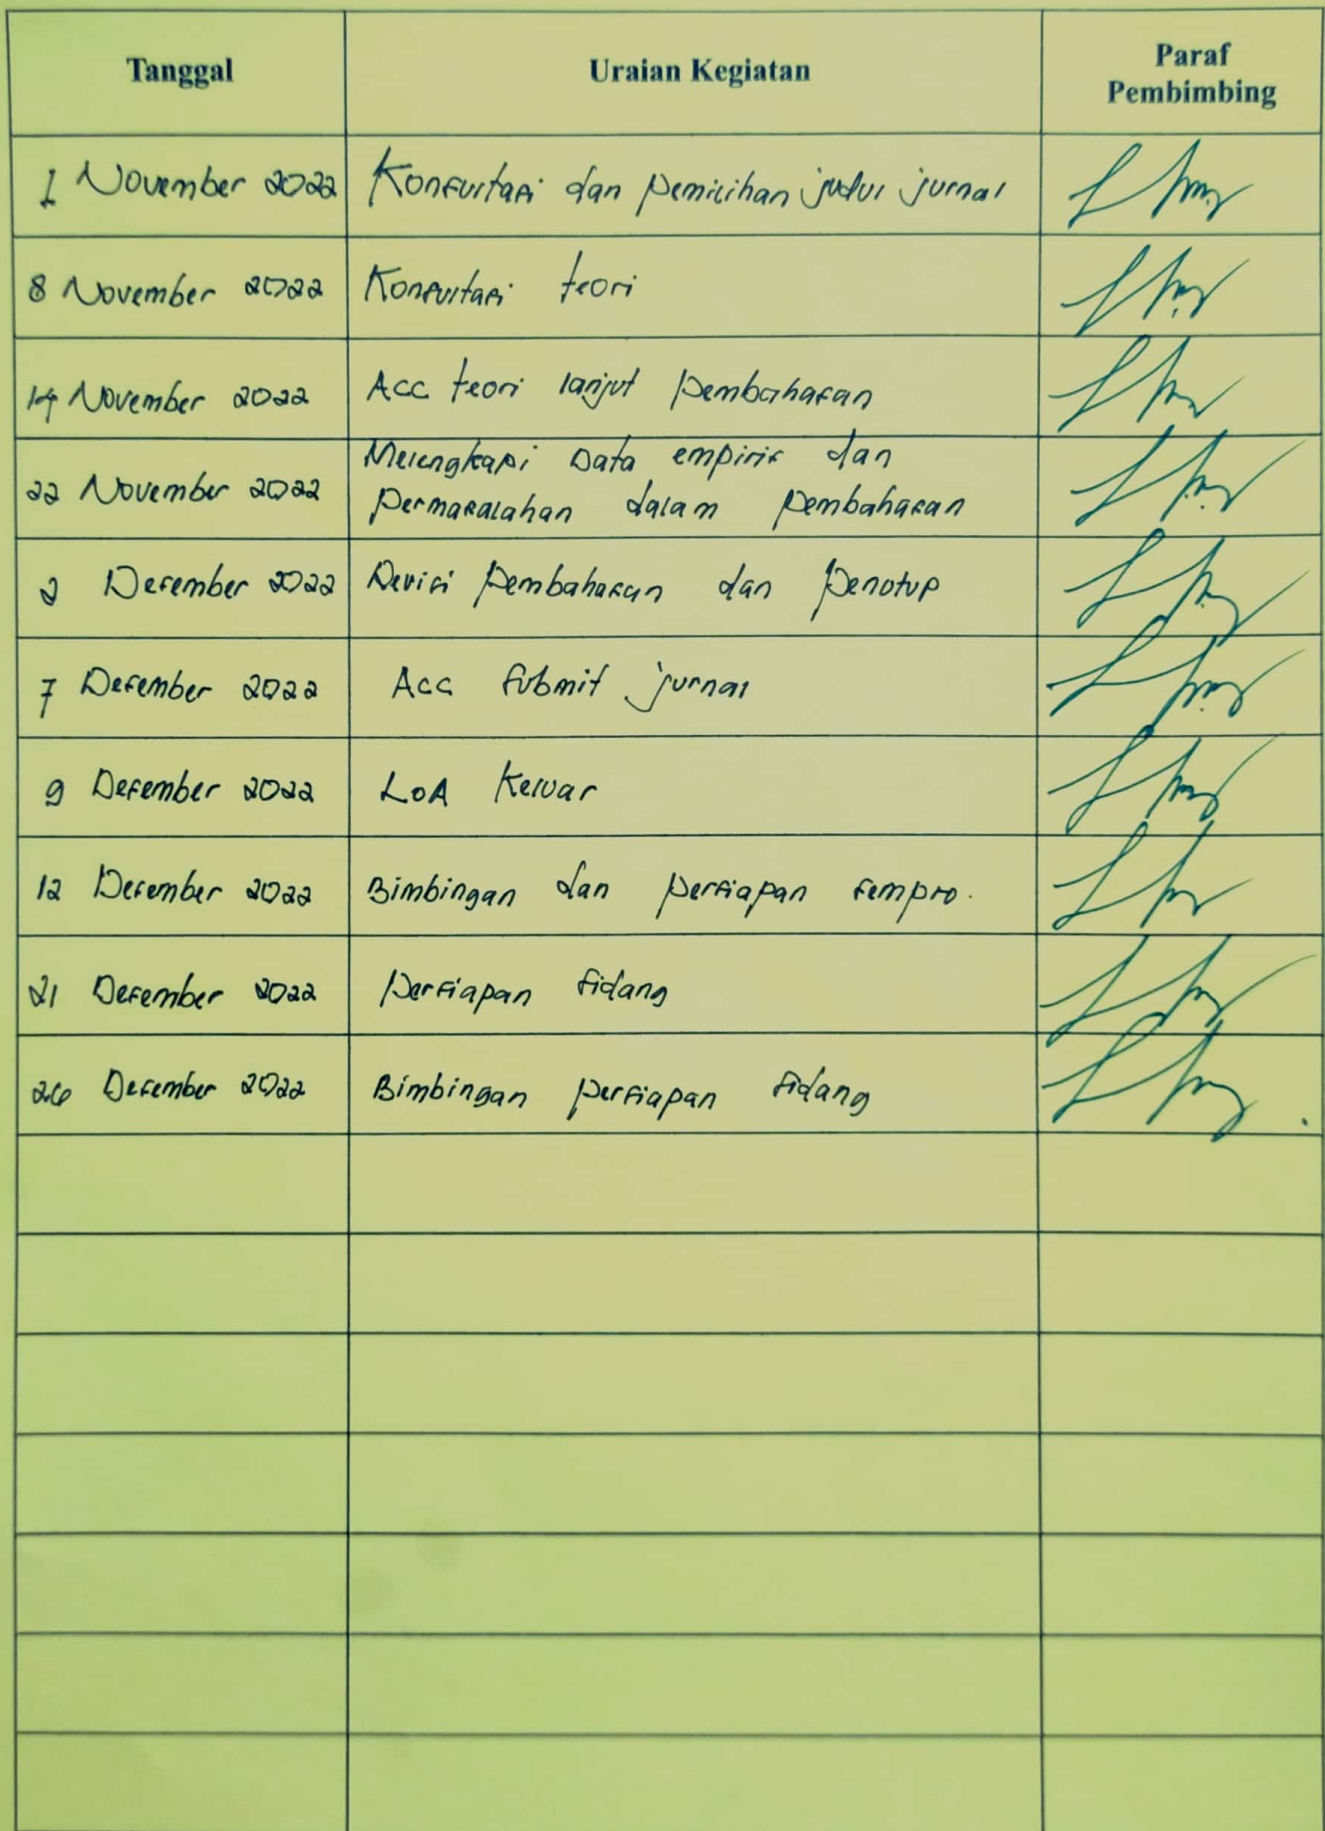 Tanggal Uraian Kegiatan Paraf
Pembimbing
1 November 2022 Konsultasi dan pemilihan judul jurnal
8 November 2022 Konsultasi teori
14 November 2022 Acc teori lanjut pembahasan
22 November 2022 Melengkapi Data empiris dan
permasalahan dalam pembahasan
2 Desember 2022 Revisi pembahasan dan penutup
7 Desember 2022 Acc submit jurnal
9 Desember 2022 LOA keluar
12 Desember 2022 Bimbingan dan persiapan sempro.
21 Desember 2022 persiapan sidang
26 Desember 2022 Bimbingan persiapan sidang